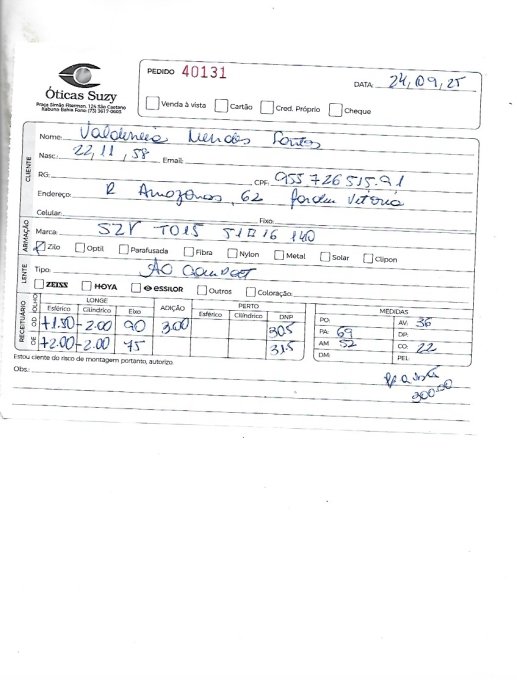 Óticas Suzy
Praça Simão Fiterman, 124 São Caetano
Itabuna Bahia Fone: (73) 3617-0603
PEDIDO 40131
DATA: 24,09,25
Venda à vista Cartão Cred. Próprio Cheque
CLIENTE
Nome: Mendes Santos
Nasc.: 22,11,58 Email:
RG: CPF: 955726515.91
Endereço: R Amazonas, 62 Jardim Vitória
Celular: Fixo:
ARMAÇÃO
Marca: SZV TO15 51□16 140
Zilo Optil Parafusada Fibra Nylon Metal Solar Clipon
LENTE
Tipo:
ZEISS HOYA essilor Outros Coloração:
RECEITUÁRIO
OLHO LONGE ADIÇÃO PERTO DNP MEDIDAS
Esférico Cilíndrico Eixo Esférico Cilíndrico
OD +1.50 -2.00 90 3.00 30.5
OE +2.00 -2.00 75 31.5
PO: AV: 36
PA: 69 DP:
AM: 52 CO: 22
DM: PEL:
Estou ciente do risco de montagem portanto, autorizo.
Obs.:
200.00